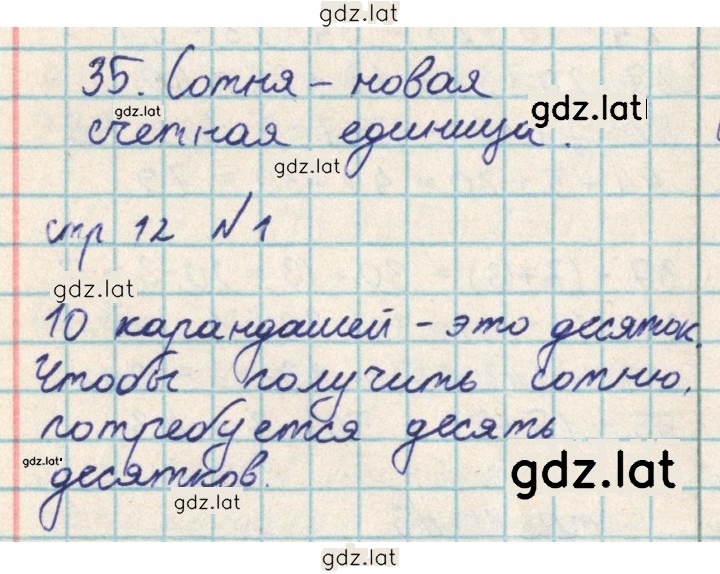 gdz.lat
35. Сотня – новая
gdz.lat
gdz.lat
счетная единица.
gdz.lat
стр 12 №1
gdz.lat
10 карандашей – это десяток.
Чтобы получить сотню,
потребуется десять
gdz.lat
десятков.
gdz.lat
gdz.lat
gdz.lat